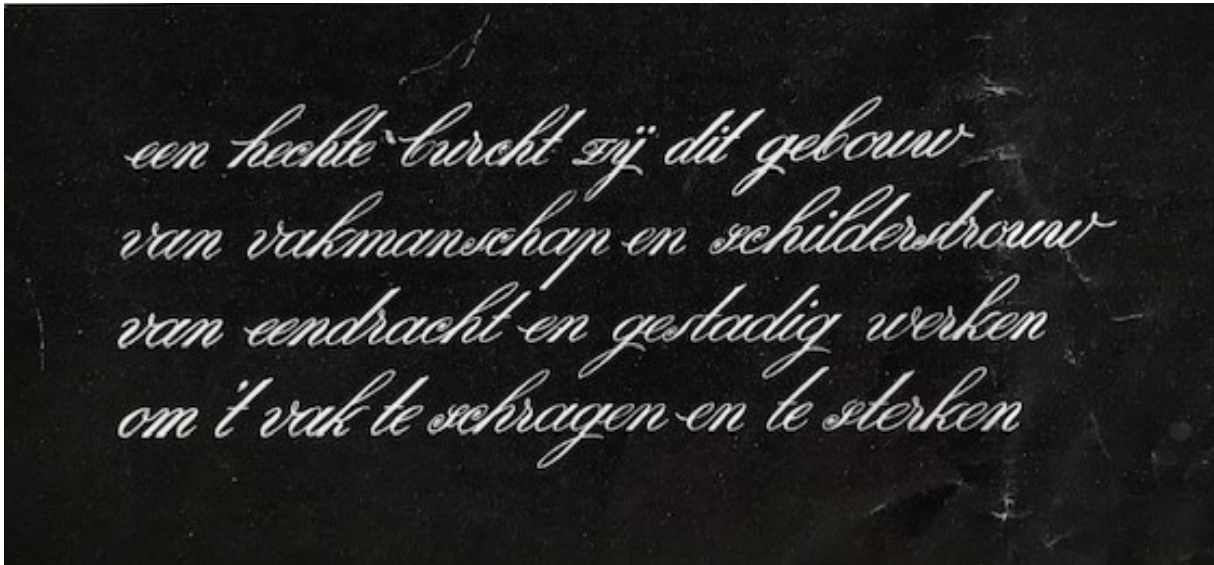 een hechte burcht zij dit gebouw
van vakmanschap en schilderstrouw
van eendracht en gestadig werken
om 't vak te schragen en te sterken